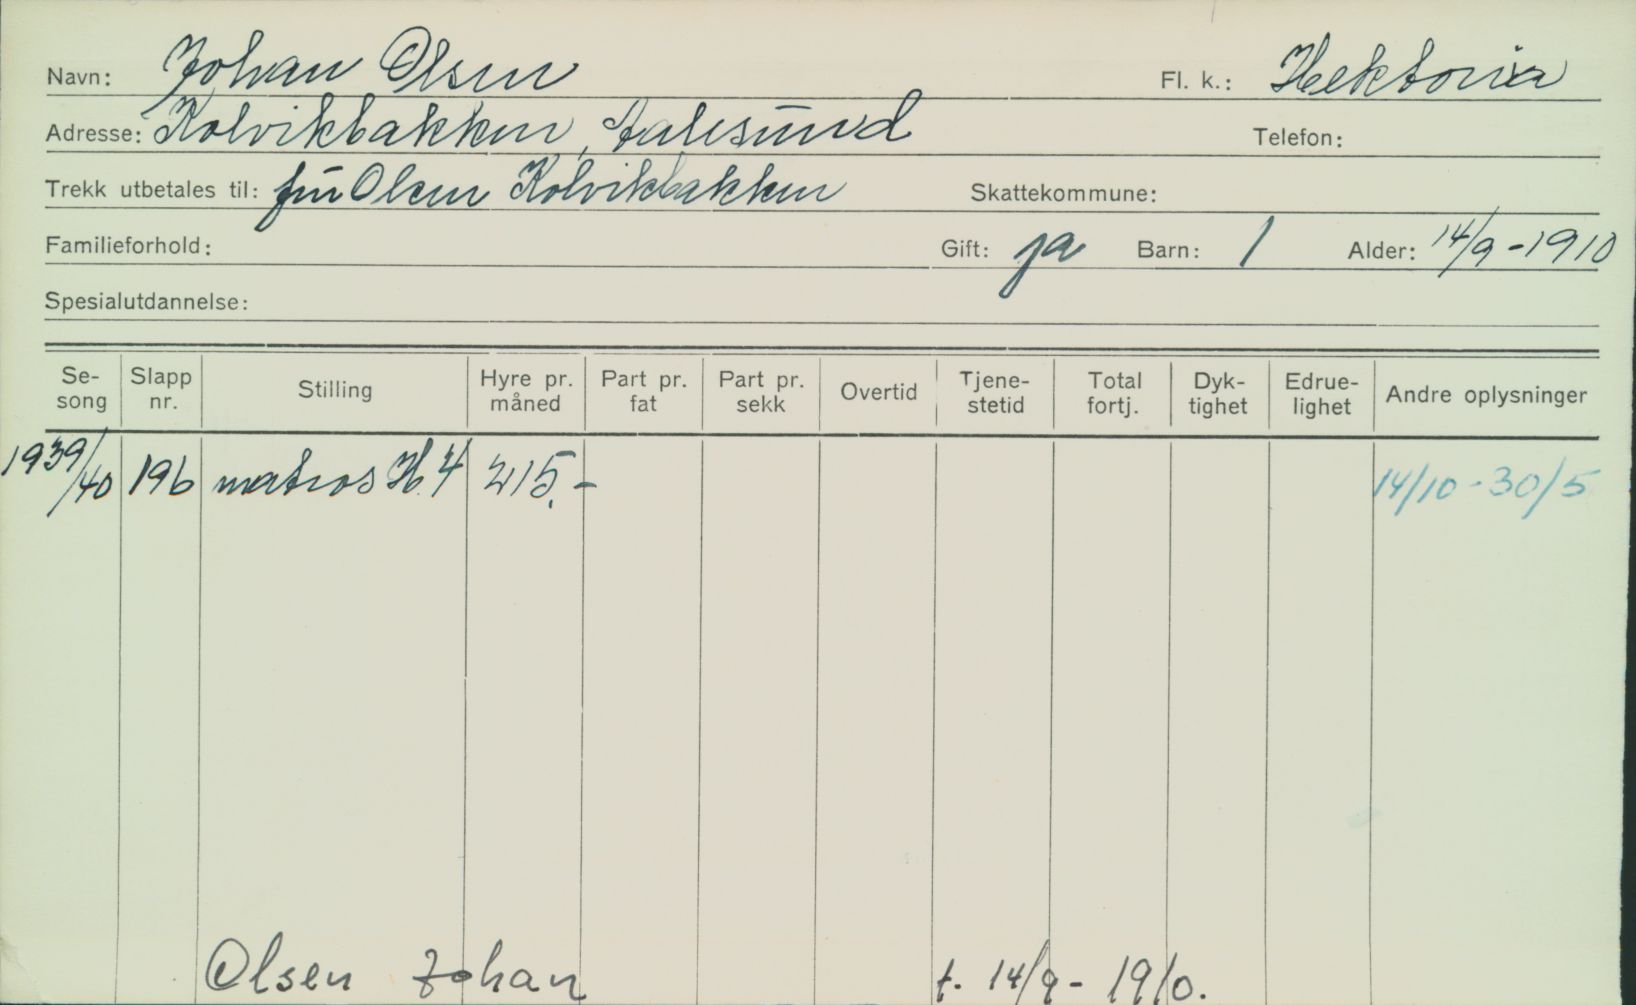 Navn: Johan Olsen Fl. k.: Hektoria
Adresse: Kolvikbakken, Aalesund Telefon:
Trekk utbetales til: fru Olsen Kolvikbakken Skattekommune:
Familieforhold: Gift: ja Barn: 1 Alder: 14/9-1910
Spesialutdannelse:
Se-song Slapp nr. Stilling Hyre pr. måned Part pr. fat Part pr. sekk Overtid Tjene-stetid Total fortj. Dyk-tighet Edrue-lighet Andre oplysninger
1939/40 196 matros H. 4 215.- 14/10-30/5
Olsen Johan f. 14/9-1910.